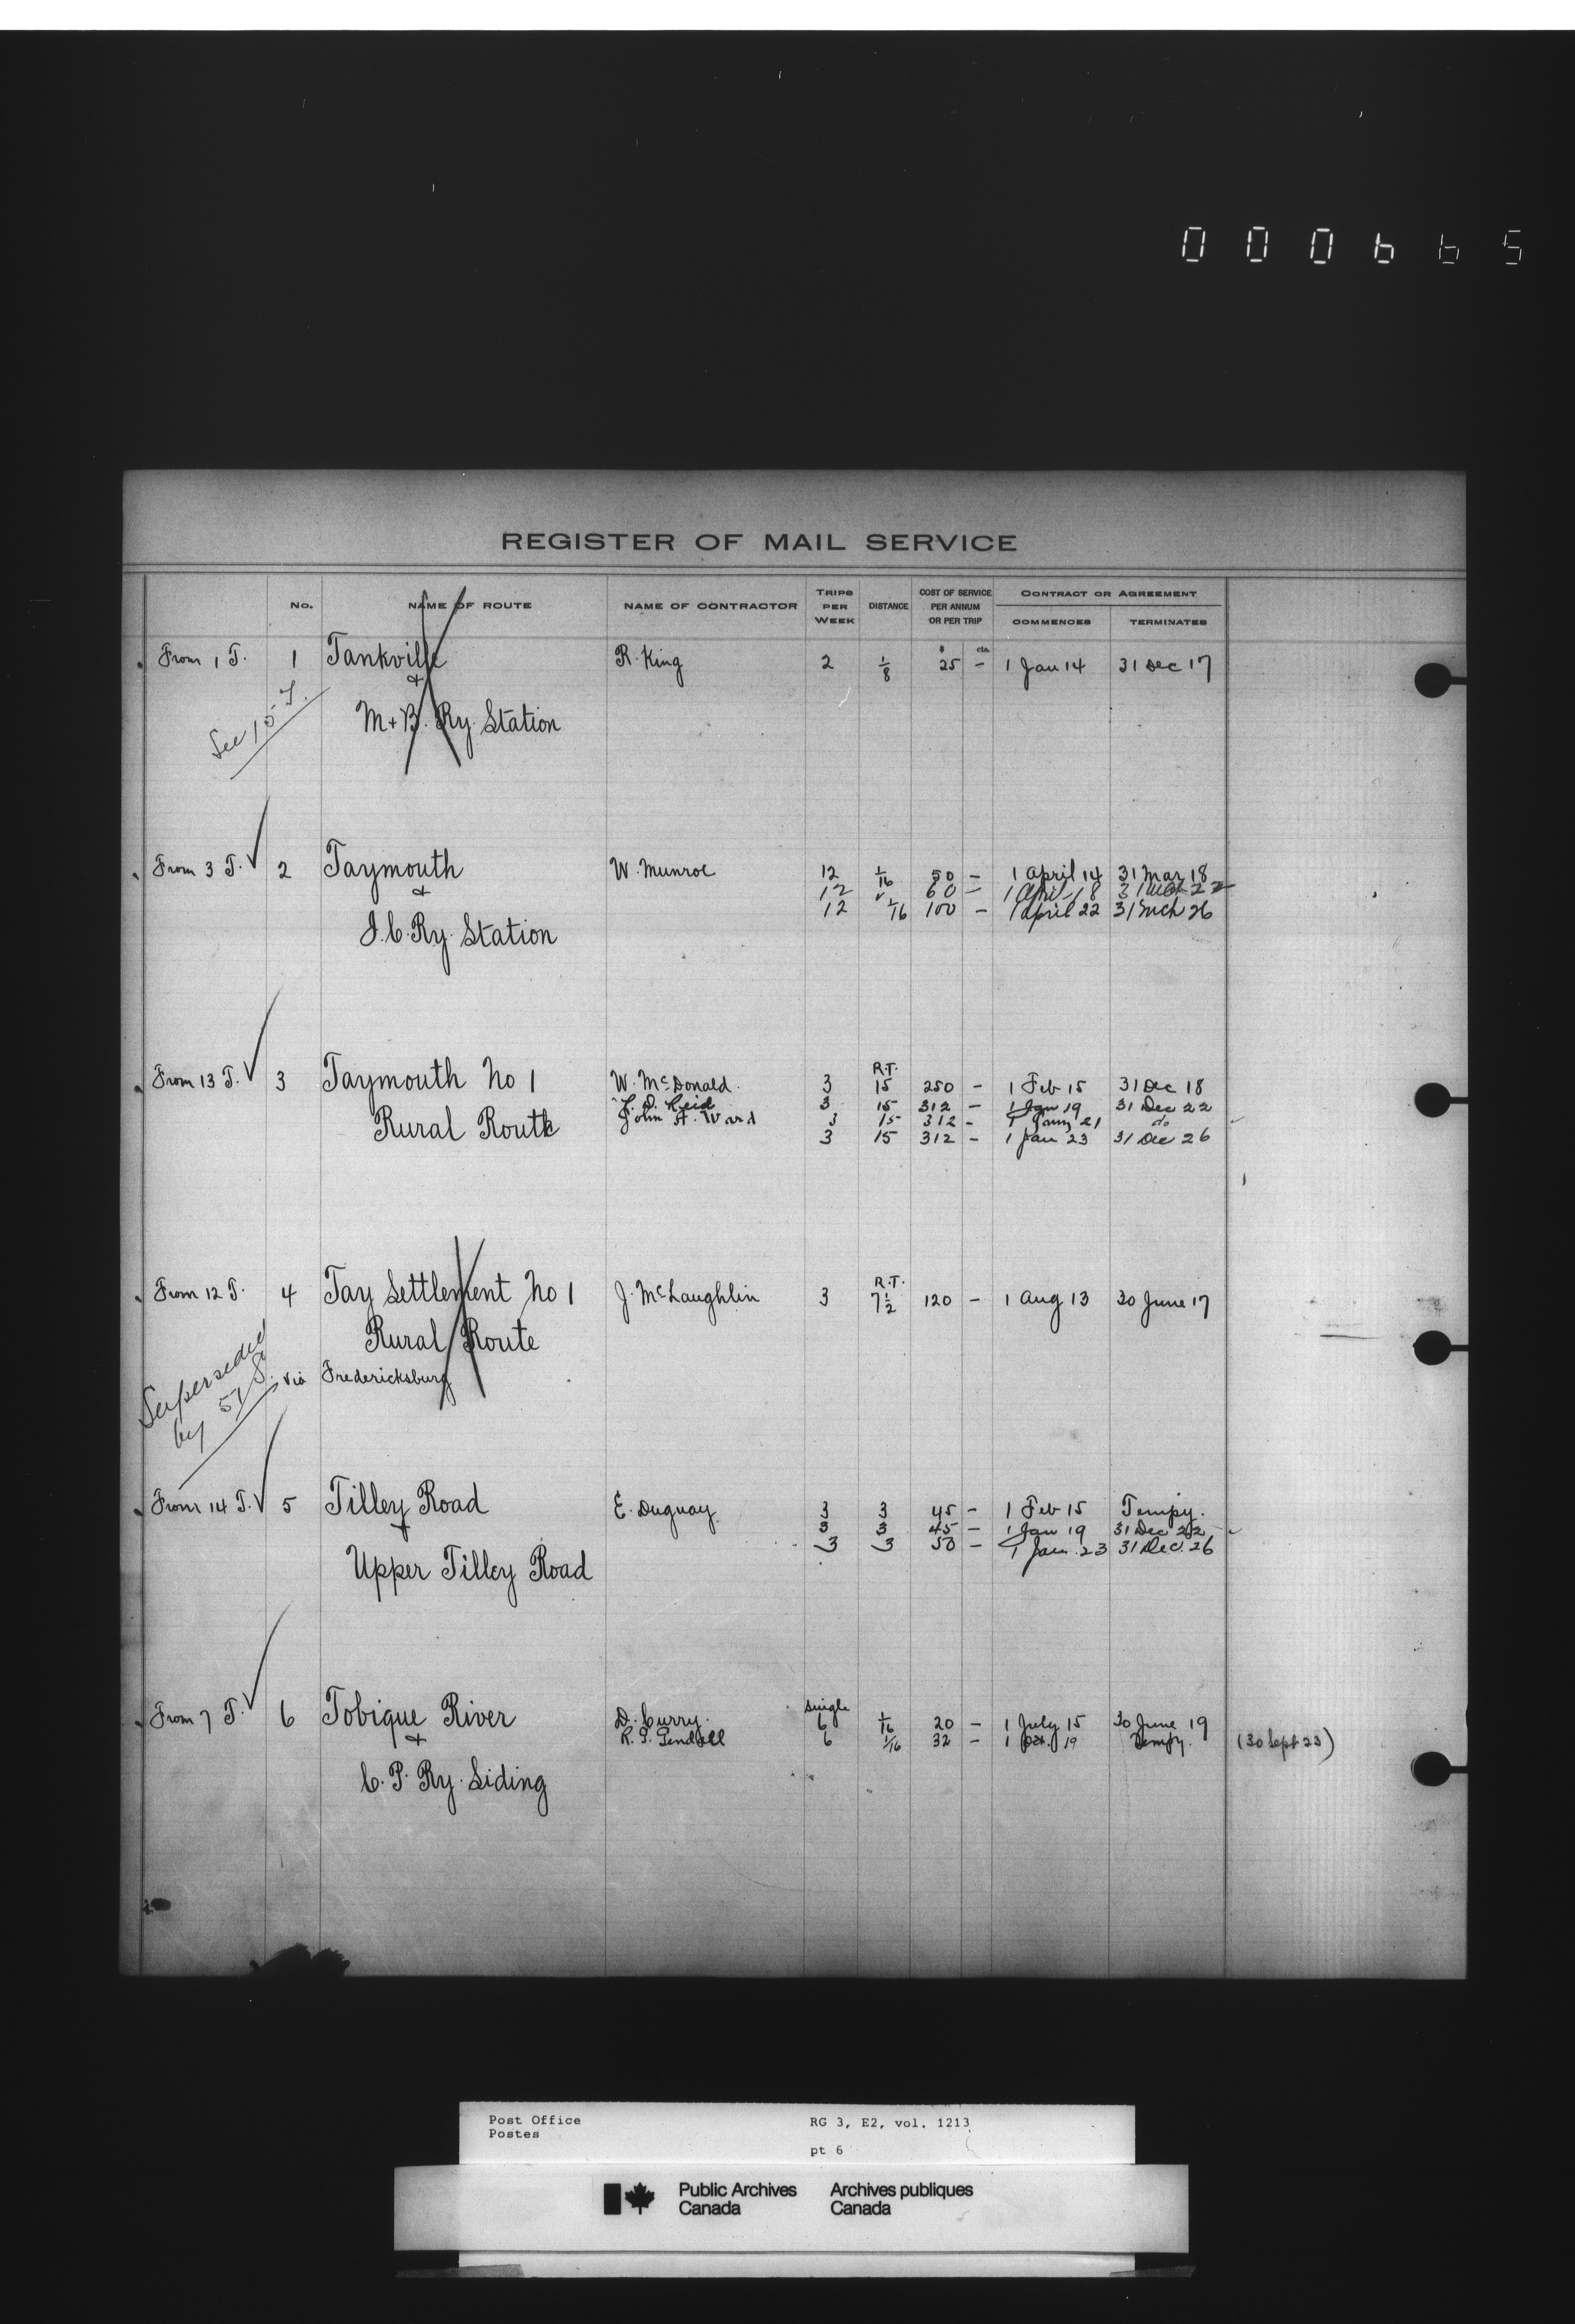 000665
REGISTER OF MAIL SERVICE
No. NAME OF ROUTE NAME OF CONTRACTOR TRIPS PER WEEK DISTANCE COST OF SERVICE PER ANNUM OR PER TRIP CONTRACT OR AGREEMENT COMMENCES TERMINATES
$ cts.
From 1 T. 1 Tankville R. King 2 1/8 25 - 1 Jan 14 31 Dec 17
&
M & B. Ry. Station
See 15 T.
From 3 T. 2 Taymouth W. Munroe 12 1/16 50 - 1 April 14 31 Mar 18
& 12 " 60 - 1 April 18 31 Mch 22
12 1/16 100 - 1 April 22 31 Mch 26
I.C. Ry. Station
R.T.
From 13 T. 3 Taymouth No 1 W. McDonald. 3 15 250 - 1 Feb 15 31 Dec 18
3 15 312 - 1 Jan 19 31 Dec 22
Rural Route John A. Ward 3 15 312 - 1 Jany 21 do
3 15 312 - 1 Jan 23 31 Dec 26
R.T.
From 12 T. 4 Tay Settlement No 1 J. McLaughlin 3 7 1/2 120 - 1 Aug 13 30 June 17
Rural Route
via Fredericksburg
Superseded
by 57 S.
From 14 T. 5 Tilley Road E. Duguay 3 3 45 - 1 Feb 15 Tempy.
& 3 3 45 - 1 Jan 19 31 Dec 22
3 3 50 - 1 Jan. 23 31 Dec. 26
Upper Tilley Road
single
From 7 T. 6 Tobique River D. Curry. 6 1/16 20 - 1 July 15 30 June 19
& 6 1/16 32 - 1 Oct. 19 Tempy. (30 Sept 23)
C. P. Ry. Siding
Post Office RG 3, E2, vol. 1213
Postes
pt 6
Public Archives Archives publiques
Canada Canada